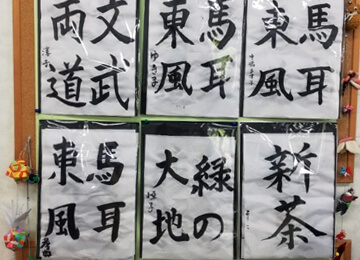 文武
両道
馬耳
東風
馬耳
東風
馬耳
東風
緑の
大地
新茶